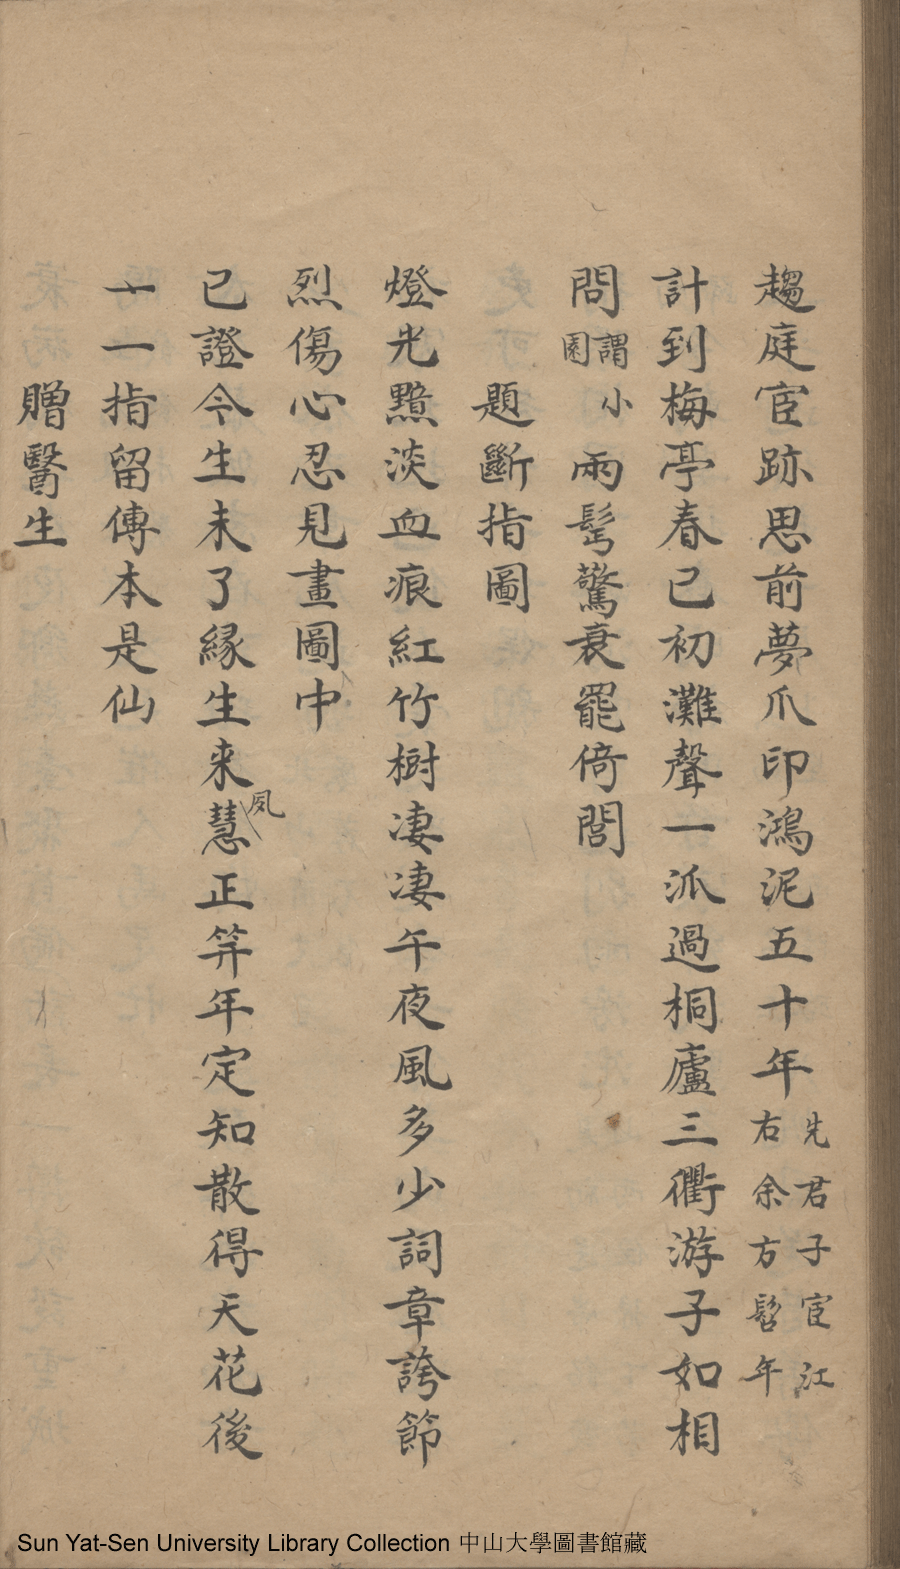 趨庭宦跡思前夢爪印鴻泥五十年先君子宦江右余方髫年
計到梅亭春已初灘聲一派過桐廬三衢游子如相
問謂小園兩髩驚衰罷倚閭
題斷指圖
燈光黯淡血痕紅竹樹凄凄午夜風多少詞章誇節
烈傷心忍見畫圖中
已證今生未了緣生来慧夙正笄年定知散得天花後
一一指留傳本是仙
贈醫生
Sun Yat-Sen University Library Collection 中山大學圖書館藏